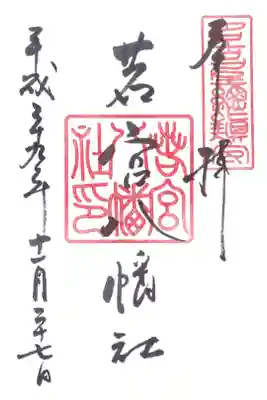 名古屋總鎮守
奉拝
若宮八幡社
若宮
八幡
社印
平成二十九年十一月二十七日